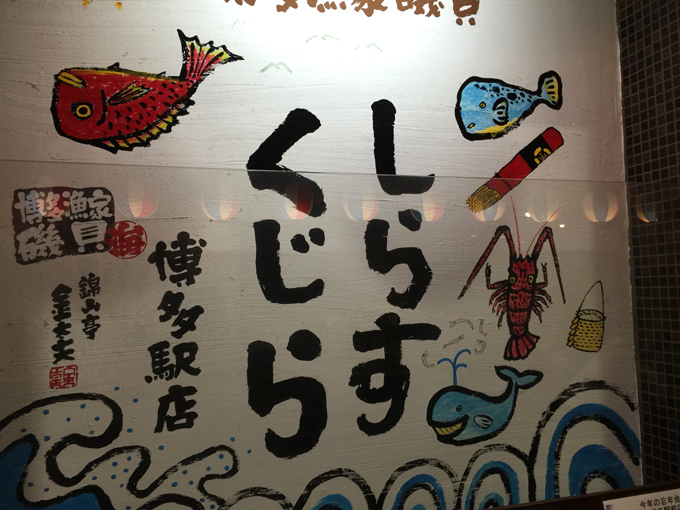 博多漁家磯貝
しらす
くじら
博多駅店
博多漁家
磯貝
海
錦山亭
金太夫
今年の忘年会